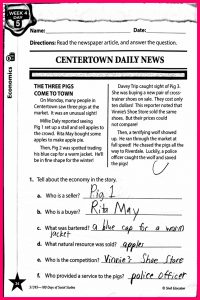 WEEK 4
DAY
5
Name:
Date:
Directions: Read the newspaper article, and answer the question.
Economics
CENTERTOWN DAILY NEWS
THE THREE PIGS
COME TO TOWN
On Monday, many people in
Centertown saw three pigs at the
market. It was an unusual sight!
Millie Daly reported seeing
Pig 1 set up a stall and sell apples
to the crowd. Rita May bought some
apples to make apple pie.
Then, Pig 2 was spotted trading
his blue cap for a warm jacket. He'll
be in fine shape for the winter!
Davey Trip caught sight of Pig 3.
She was buying a new pair of cross-
trainer shoes on sale. They cost only
ten dollars! This reporter noted that
Vinnie's Shoe Store sold the same
shoes. But their prices could
not compare!
Then, a terrifying wolf showed
up. He ran through the market at
full speed. He chased the pigs all the
way to Riverdale. Luckily, a police
officer caught the wolf and saved
the pigs!
1. Tell about the economy in the story.
a. Who is a seller? Pig 1
b. Who is a buyer? Rita May
c. What was bartered? a blue cap for a warm
jacket
d. What natural resource was sold? apples
e. Who is the competition? Vinnie's Shoe Store
f. Who provided a service to the pigs? police officer
180 Days of Social Studies
© Shell Education